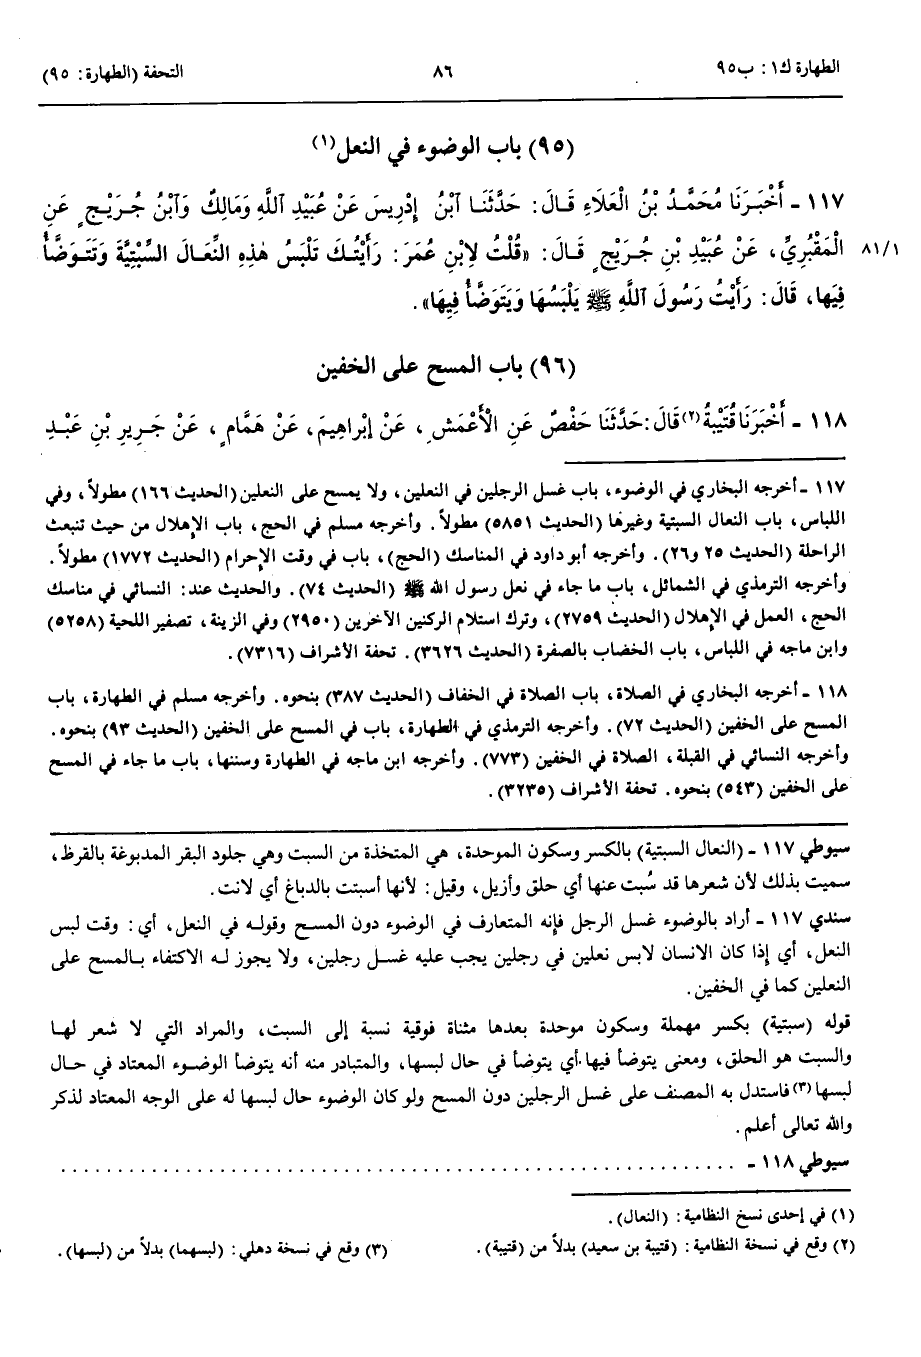 الطهارة ك١: ب٩٥
٨٦
التحفة (الطهارة: ٩٥)
(٩٥) باب الوضوء في النعل(١)
١١٧ - أَخْبَرَنَا مُحَمَّدُ بْنُ الْعَلَاءِ قَالَ: حَدَّثَنَا ٱبْنُ إِدْرِيسَ عَنْ عُبَيْدِ ٱللَّهِ وَمَالِكٌ وَٱبْنُ جُرَيْجٍ عَنِ
٨١/١
الْمَقْبُرِيِّ، عَنْ عُبَيْدِ بْنِ جُرَيْجٍ قَالَ: «قُلْتُ لِابْنِ عُمَرَ: رَأَيْتُكَ تَلْبَسُ هٰذِهِ النِّعَالَ السِّبْتِيَّةَ وَتَتَوَضَّأُ
فِيهَا، قَالَ: رَأَيْتُ رَسُولَ ٱللَّهِ ﷺ يَلْبَسُهَا وَيَتَوَضَّأُ فِيهَا».
(٩٦) باب المسح على الخفين
١١٨ - أَخْبَرَنَا قُتَيْبَةُ(٢) قَالَ: حَدَّثَنَا حَفْصٌ عَنِ الْأَعْمَشِ، عَنْ إِبْرَاهِيمَ، عَنْ هَمَّامٍ، عَنْ جَرِيرِ بْنِ عَبْدِ
١١٧ - أخرجه البخاري في الوضوء، باب غسل الرجلين في النعلين، ولا يمسح على النعلين (الحديث ١٦٦) مطولاً، وفي
اللباس، باب النعال السبتية وغيرها (الحديث ٥٨٥١) مطولاً. وأخرجه مسلم في الحج، باب الإهلال من حيث تنبعث
الراحلة (الحديث ٢٥ و٢٦). وأخرجه أبو داود في المناسك (الحج)، باب في وقت الإحرام (الحديث ١٧٧٢) مطولاً.
وأخرجه الترمذي في الشمائل، باب ما جاء في نعل رسول الله ﷺ (الحديث ٧٤). والحديث عند: النسائي في مناسك
الحج، العمل في الإهلال (الحديث ٢٧٥٩)، وترك استلام الركنين الآخرين (٢٩٥٠) وفي الزينة، تصفير اللحية (٥٢٥٨)
وابن ماجه في اللباس، باب الخضاب بالصفرة (الحديث ٣٦٢٦). تحفة الأشراف (٧٣١٦).
١١٨ - أخرجه البخاري في الصلاة، باب الصلاة في الخفاف (الحديث ٣٨٧) بنحوه. وأخرجه مسلم في الطهارة، باب
المسح على الخفين (الحديث ٧٢). وأخرجه الترمذي في الطهارة، باب في المسح على الخفين (الحديث ٩٣) بنحوه.
وأخرجه النسائي في القبلة، الصلاة في الخفين (٧٧٣). وأخرجه ابن ماجه في الطهارة وسننها، باب ما جاء في المسح
على الخفين (٥٤٣) بنحوه. تحفة الأشراف (٣٢٣٥).
سيوطي ١١٧ - (النعال السبتية) بالكسر وسكون الموحدة، هي المتخذة من السبت وهي جلود البقر المدبوغة بالقرظ،
سميت بذلك لأن شعرها قد سُبت عنها أي حلق وأزيل، وقيل: لأنها أسبتت بالدباغ أي لانت.
سندي ١١٧ - أراد بالوضوء غسل الرجل فإنه المتعارف في الوضوء دون المسح وقوله في النعل، أي: وقت لبس
النعل، أي إذا كان الانسان لابس نعلين في رجلين يجب عليه غسل رجلين، ولا يجوز له الاكتفاء بالمسح على
النعلين كما في الخفين.
قوله (سبتية) بكسر مهملة وسكون موحدة بعدها مثناة فوقية نسبة إلى السبت، والمراد التي لا شعر لها
والسبت هو الحلق، ومعنى يتوضأ فيها أي يتوضأ في حال لبسها، والمتبادر منه أنه يتوضأ الوضوء المعتاد في حال
لبسها(٣) فاستدل به المصنف على غسل الرجلين دون المسح ولو كان الوضوء حال لبسها له على الوجه المعتاد لذكر
والله تعالى أعلم.
سيوطي ١١٨ - . . . . . . . . . . . . . . . . . . . . . . . . . . . . . . . . . . . . . . . . . . . . . . . . . . . .
(١) في إحدى نسخ النظامية: (النعال).
(٢) وقع في نسخة النظامية: (قتيبة بن سعيد) بدلاً من (قتيبة).
(٣) وقع في نسخة دهلي: (لبسهما) بدلاً من (لبسها).